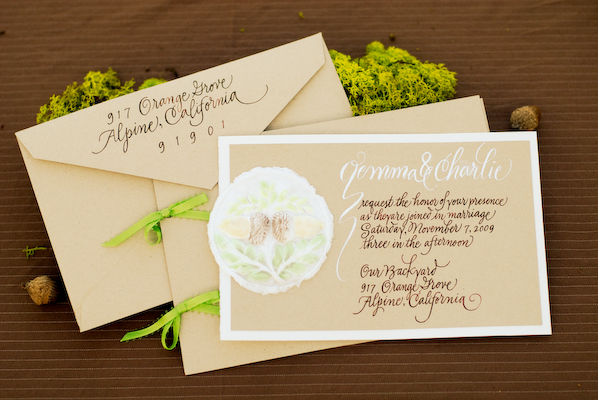 917 Orange Grove
Alpine, California
91901
Gemma & Charlie
request the honor of your presence
as they are joined in marriage
Saturday, November 7, 2009
three in the afternoon
Our Backyard
917 Orange Grove
Alpine, California